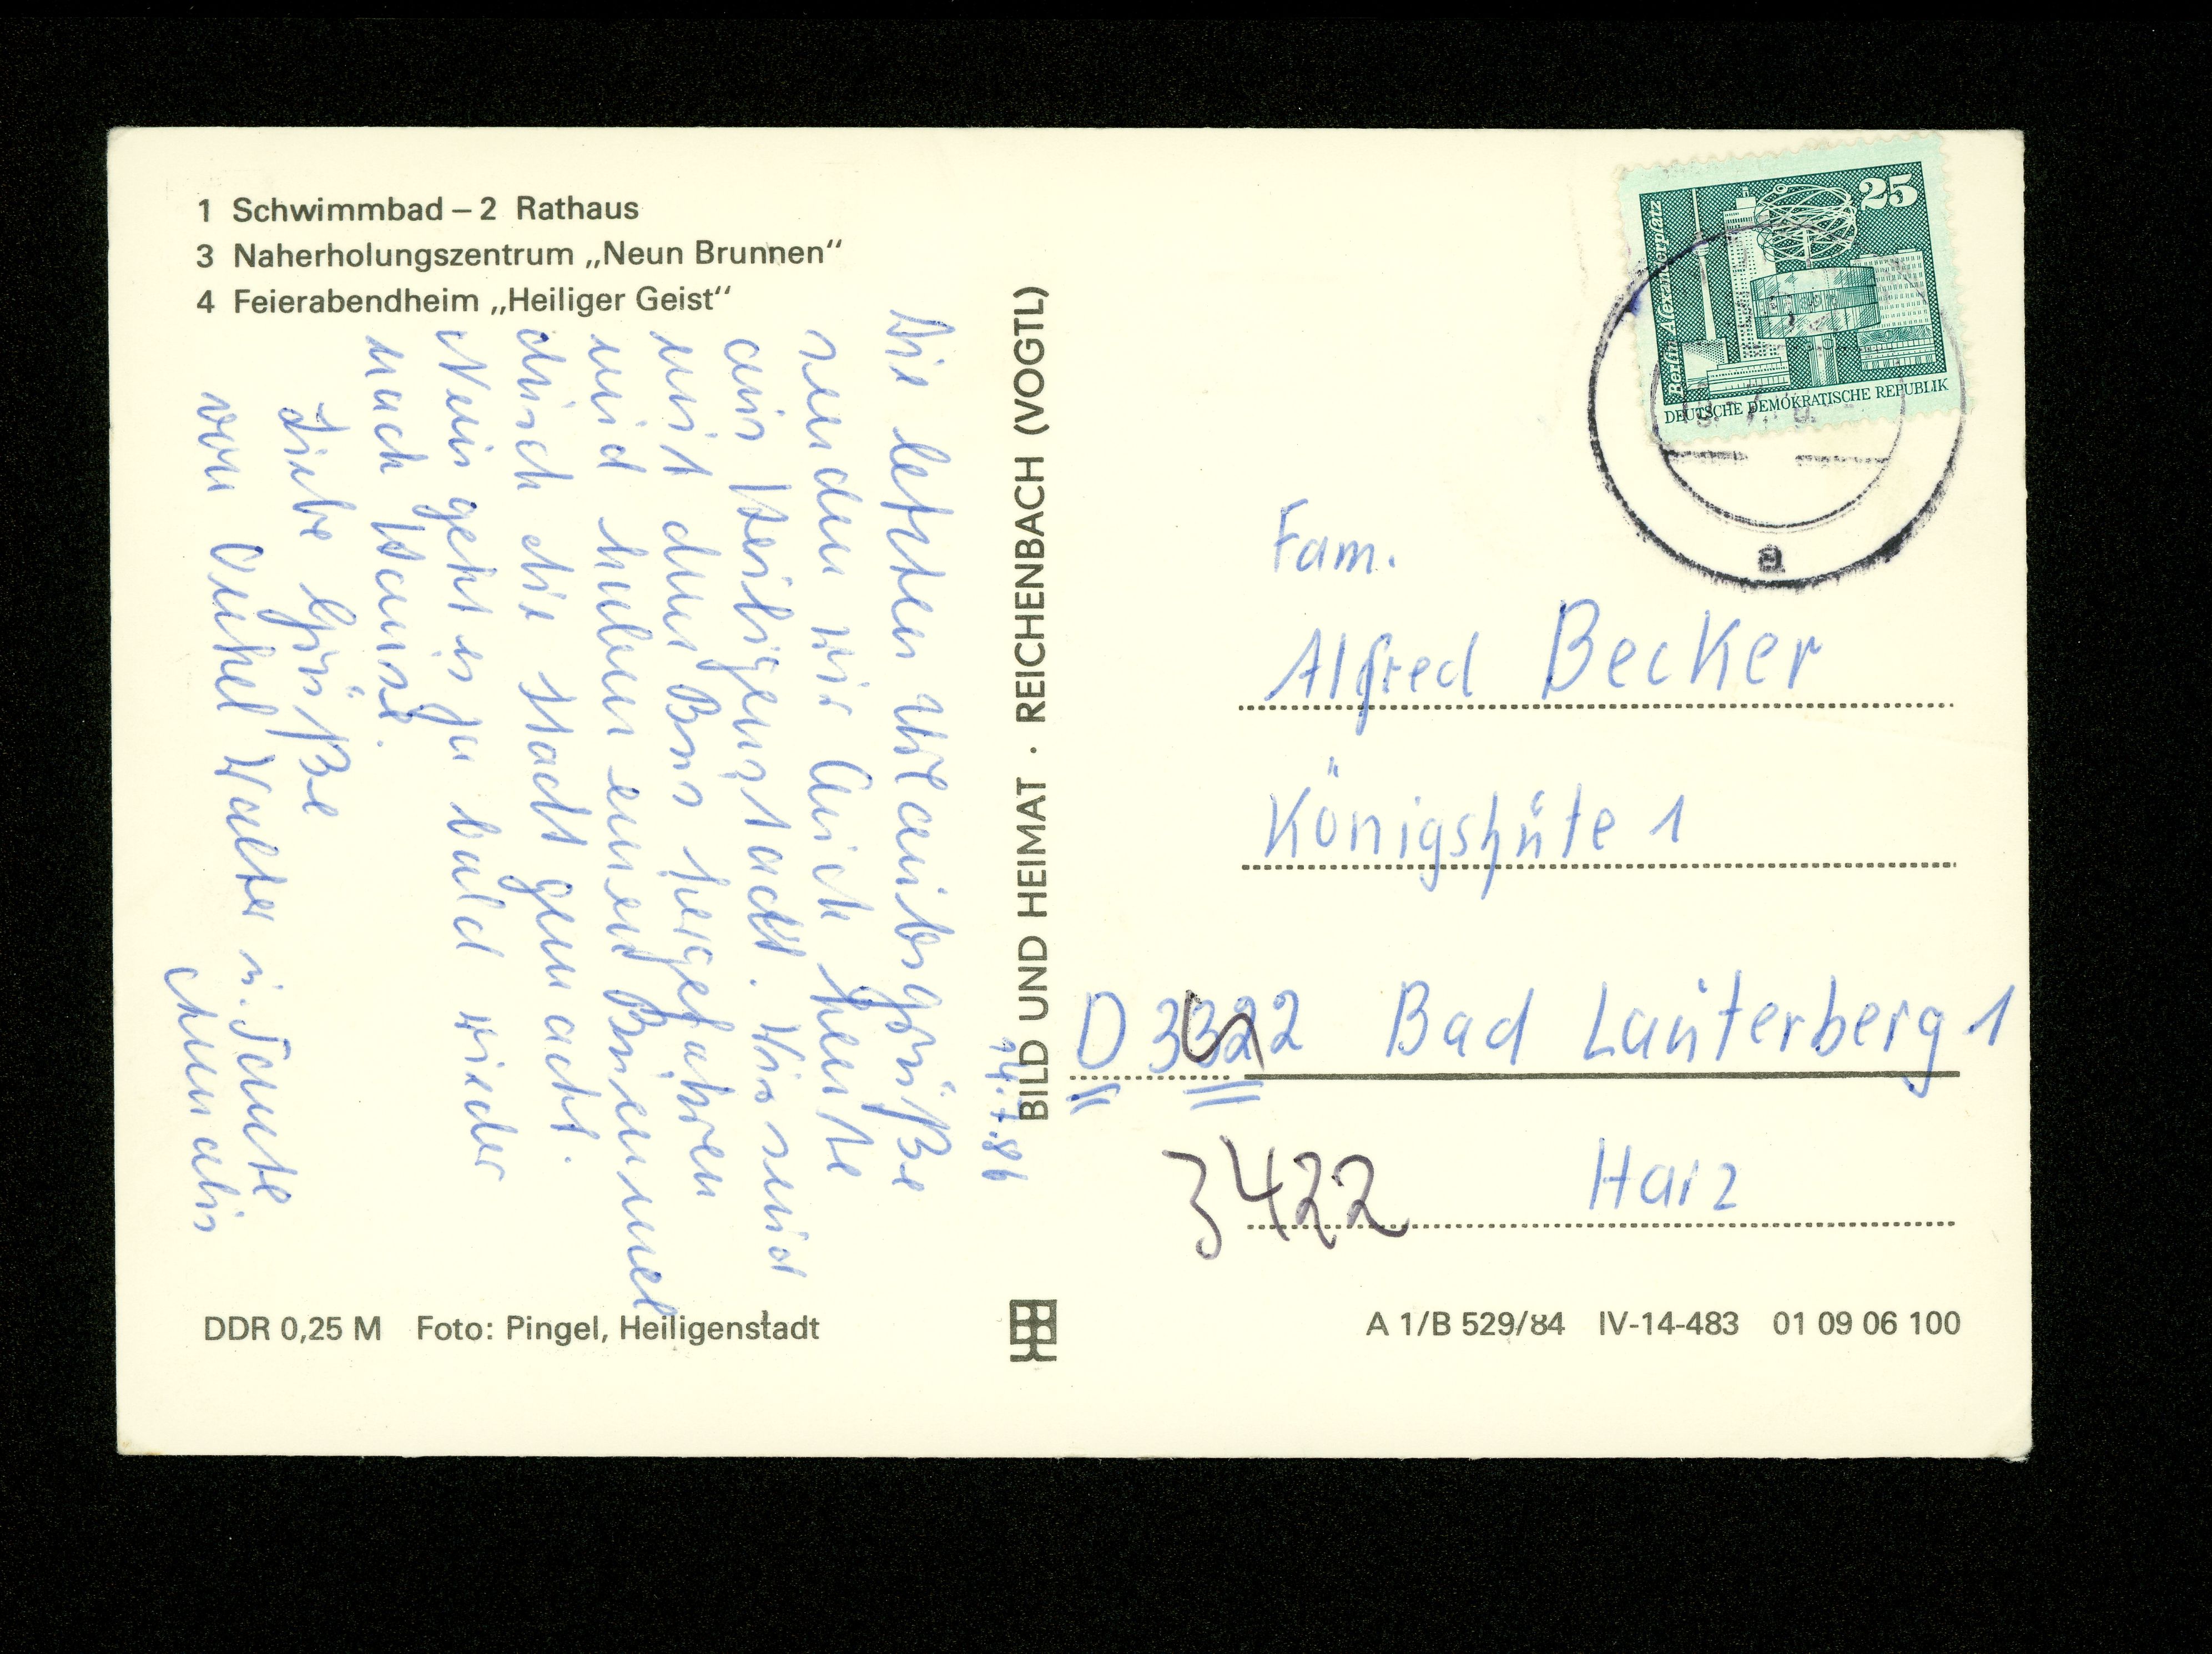 1 Schwimmbad – 2 Rathaus
3 Naherholungszentrum „Neun Brunnen“
4 Feierabendheim „Heiliger Geist“
14.7.86
Die letzten Urlaubsgrüße
senden wir Euch heute
aus Heiligenstadt. Wir sind
mit dem Bus hergefahren
und haben einen Bummel
durch die Stadt gemacht.
Nun geht es ja bald wieder
nach Hause.
Liebe Grüße
von Onkel Walter u. Tante
BILD UND HEIMAT · REICHENBACH (VOGTL)
25
Berlin Alexanderplatz
DEUTSCHE DEMOKRATISCHE REPUBLIK
a
Fam.
Alfred Becker
Königshüte 1
D Bad Lauterberg 1
3422 Harz
DDR 0,25 M Foto: Pingel, Heiligenstadt
A 1/B 529/84 IV-14-483 01 09 06 100